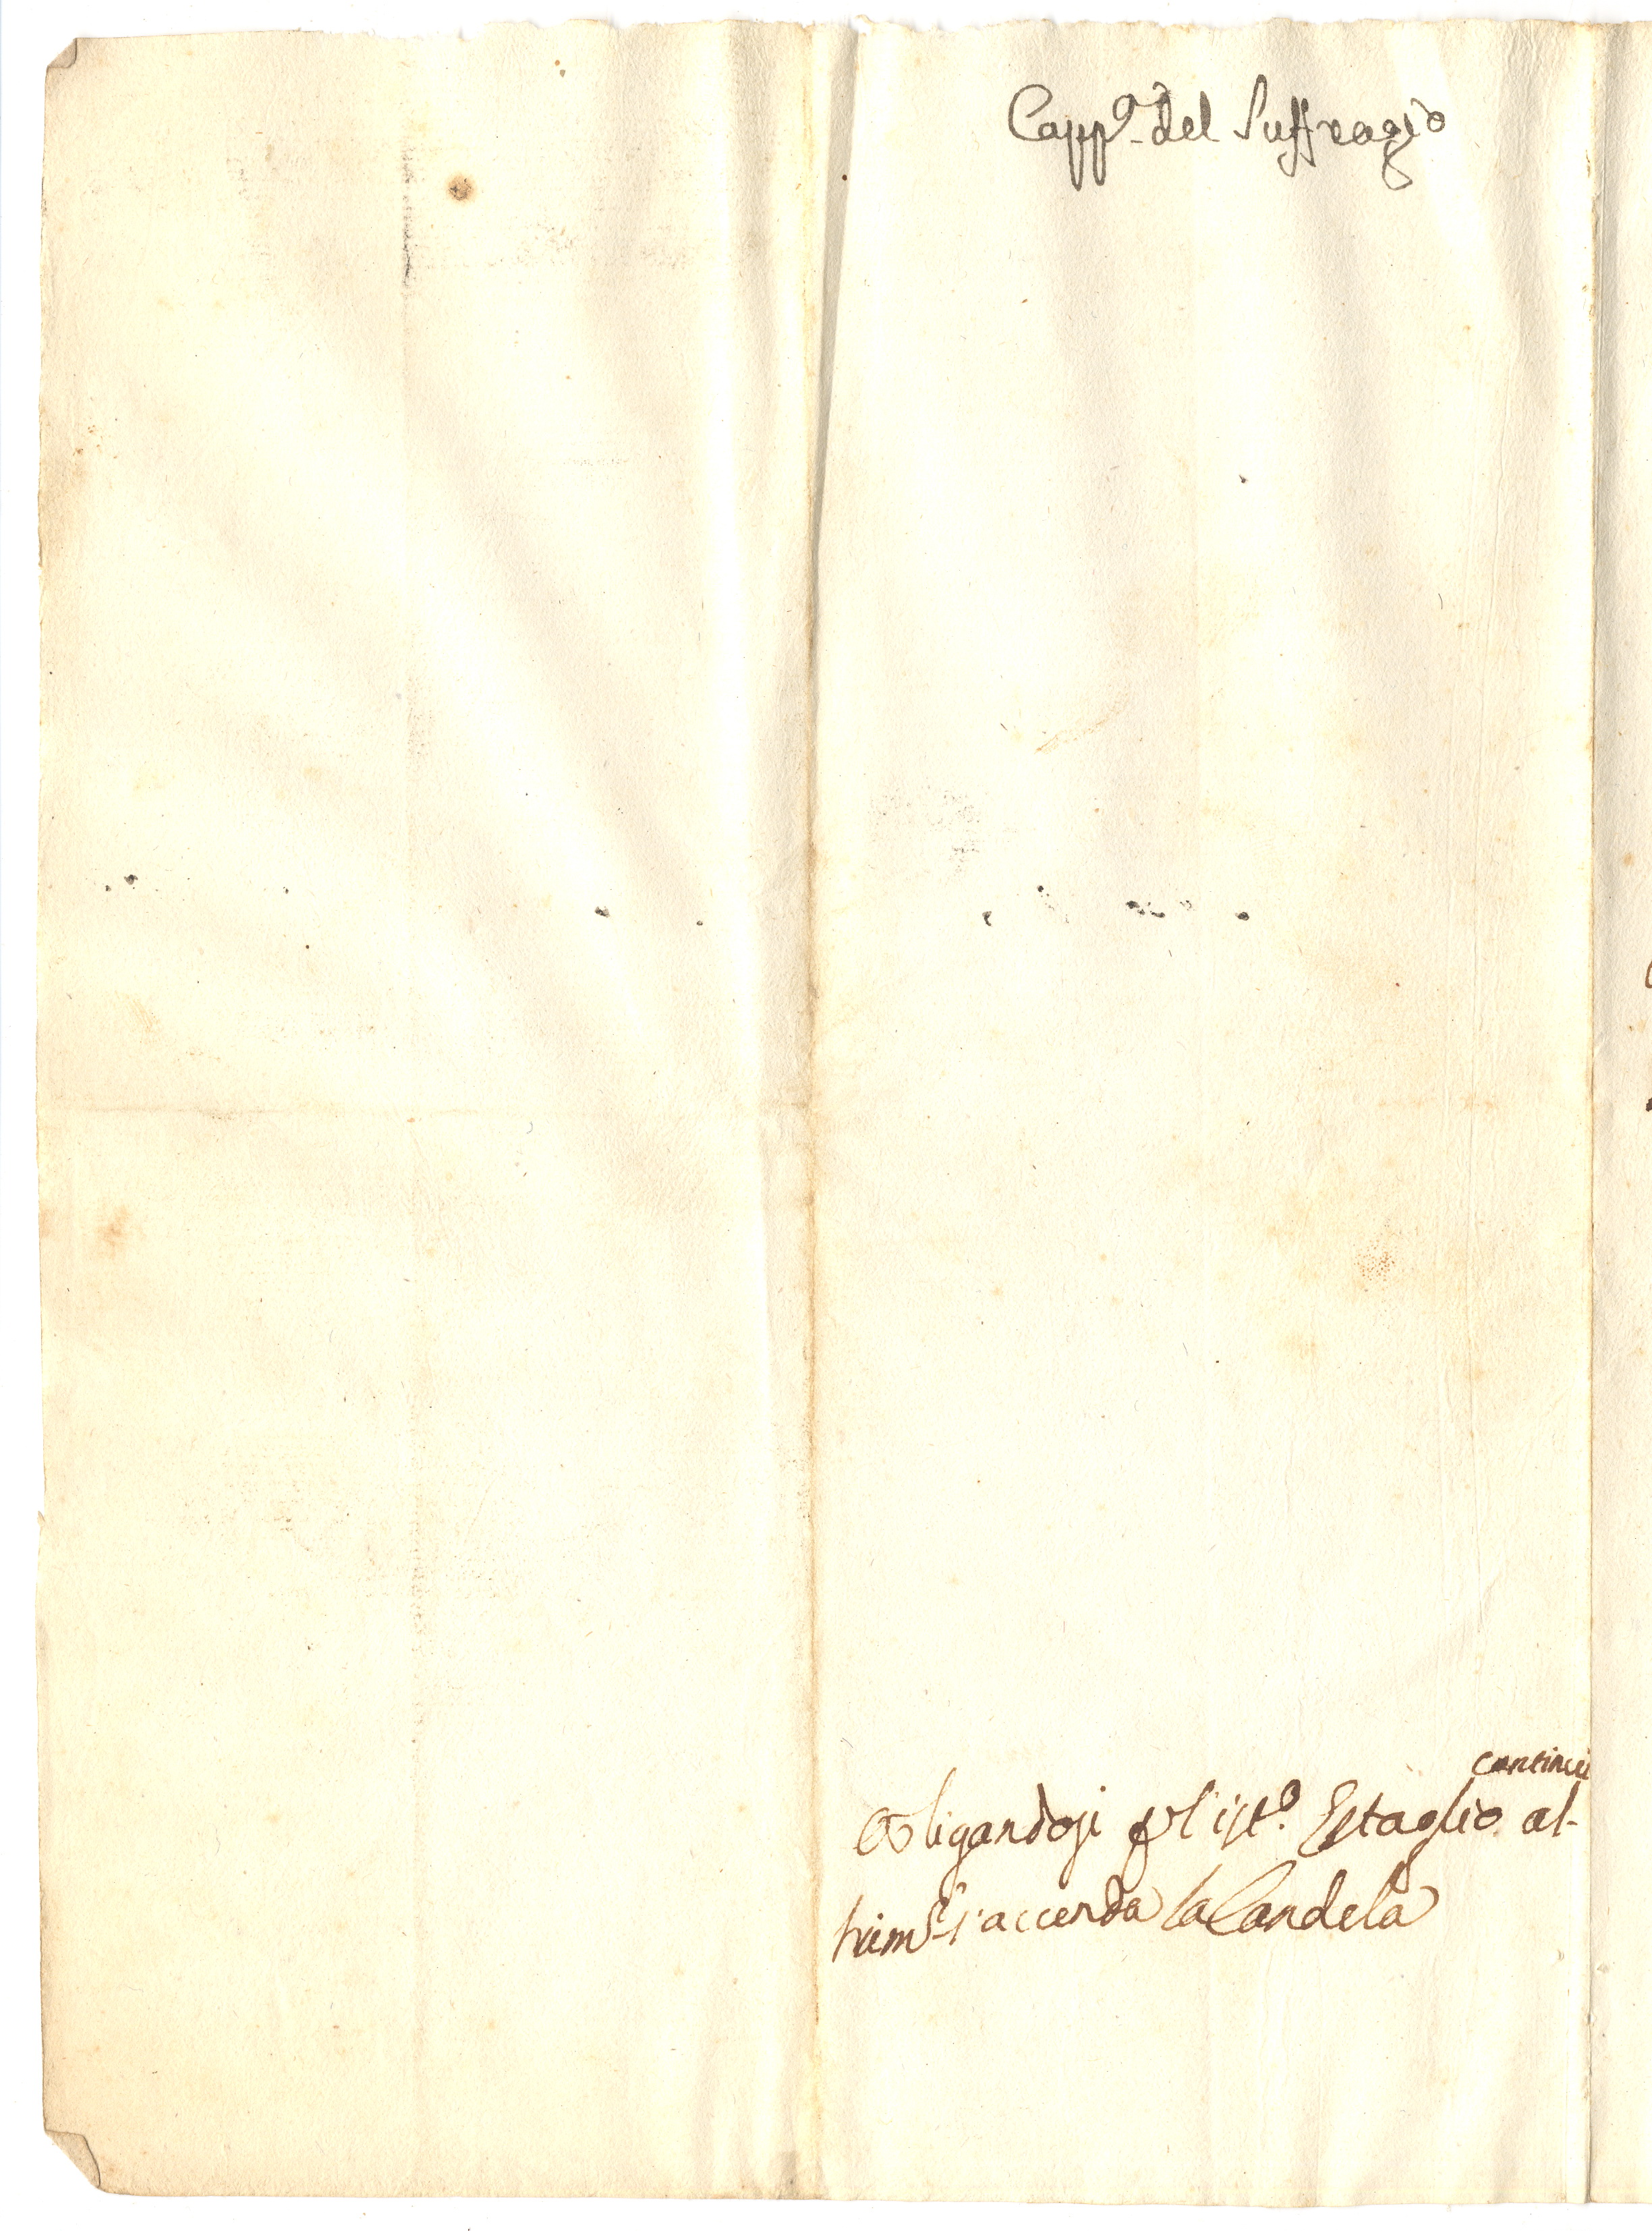 Capp.a del Suffragio
continui
Obligandosi p l'ist.o Estaglio al-
trim.e s'accenda la Candela